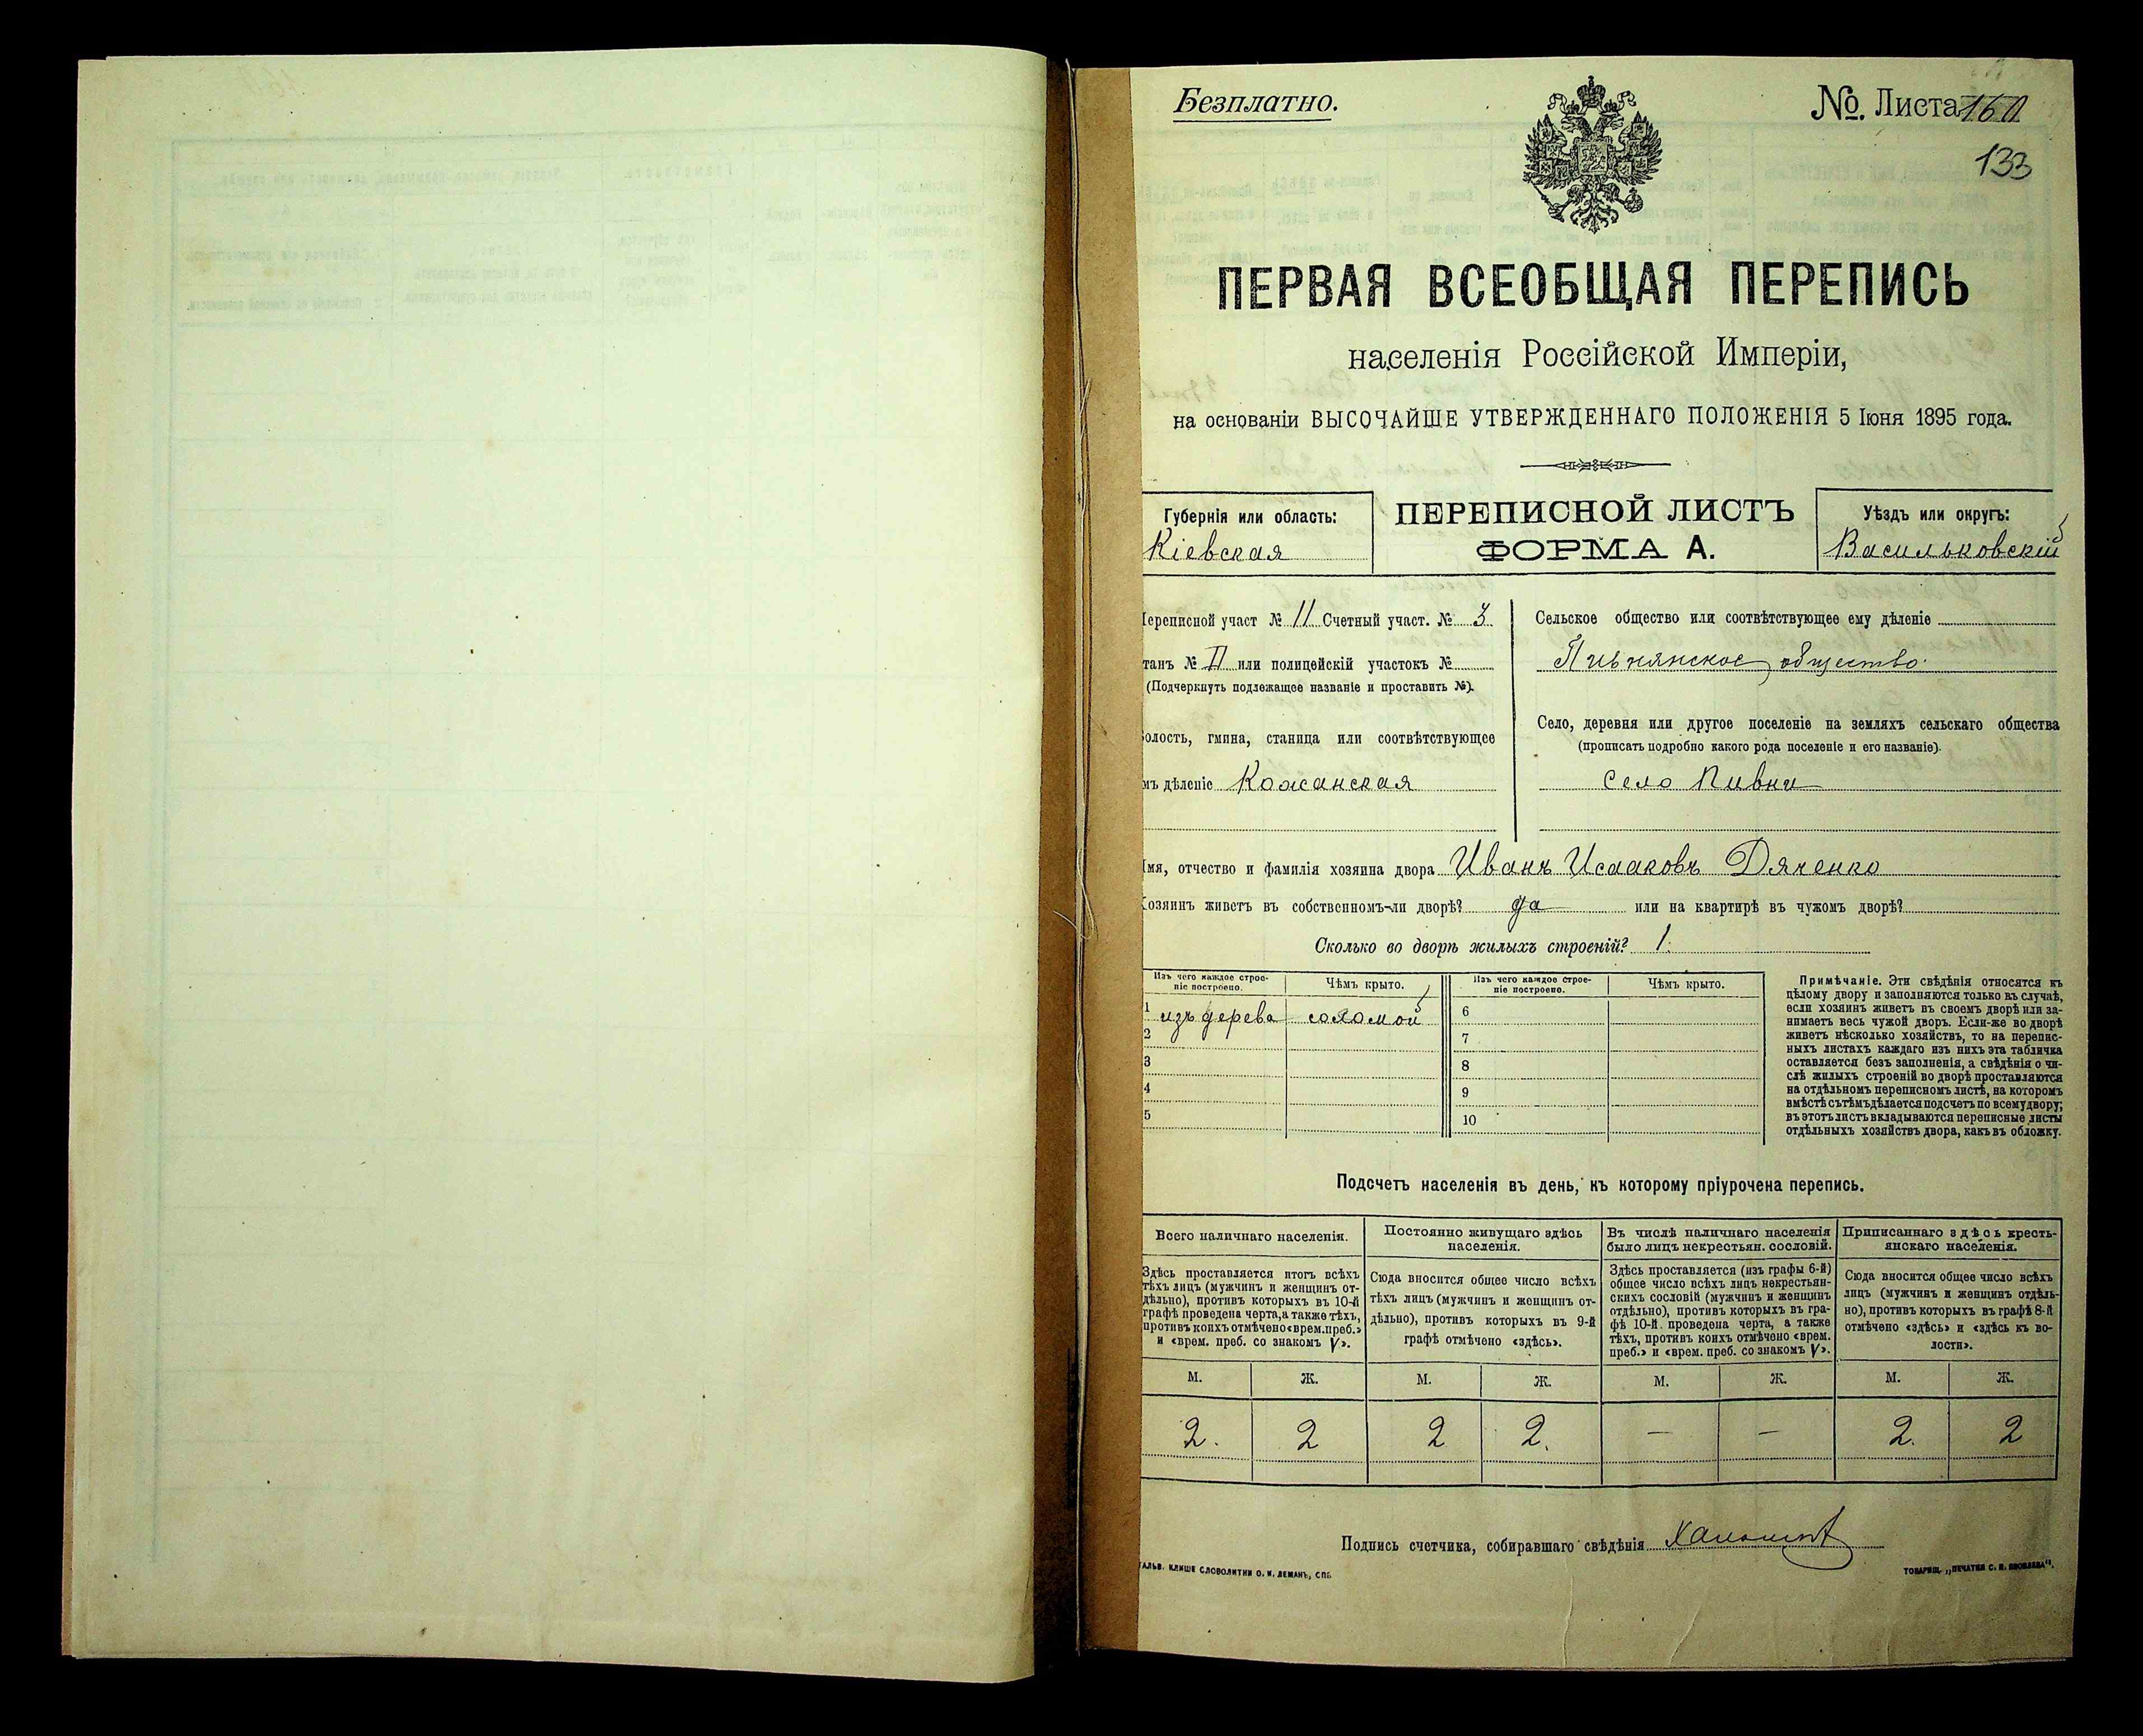 Безплатно.
№. Листа 160
133
ПЕРВАЯ ВСЕОБЩАЯ ПЕРЕПИСЬ
населенія Россійской Имперіи,
на основаніи ВЫСОЧАЙШЕ УТВЕРЖДЕННАГО ПОЛОЖЕНІЯ 5 Іюня 1895 года.
Губернія или область:
Кіевская
ПЕРЕПИСНОЙ ЛИСТЪ
ФОРМА А.
Уѣздъ или округъ:
Васильковскій
ереписной участ № 11 Счетный участ. № 3
танъ № II или полицейскій участокъ №
(Подчеркнуть подлежащее названіе и проставить №).
олость, гмина, станица или соотвѣтствующее
мъ дѣленіе Кожанская
Сельское общество или соотвѣтствующее ему дѣленіе
Пивнянское общество.
Село, деревня или другое поселеніе на земляхъ сельскаго общества
(прописать подробно какого рода поселеніе и его названіе).
село Пивни
мя, отчество и фамилія хозяина двора Иванъ Исааковъ Дяченко
озяинъ живетъ въ собственномъ-ли дворѣ? да или на квартирѣ въ чужомъ дворѣ?
Сколько во дворѣ жилыхъ строеній? 1.
Изъ чего каждое строе-
ніе построено.
Чѣмъ крыто.
Изъ чего каждое строе-
ніе построено.
Чѣмъ крыто.
1 изъ дерева соломой 6
2 7
3 8
4 9
5 10
Примѣчаніе. Эти свѣдѣнія относятся къ
цѣлому двору и заполняются только въ случаѣ,
если хозяинъ живетъ въ своемъ дворѣ или за-
нимаетъ весь чужой дворъ. Если-же во дворѣ
живетъ нѣсколько хозяйствъ, то на перепис-
ныхъ листахъ каждаго изъ нихъ эта табличка
оставляется безъ заполненія, а свѣдѣнія о чи-
слѣ жилыхъ строеній во дворѣ проставляются
на отдѣльномъ переписномъ листѣ, на которомъ
вмѣстѣ съ тѣмъ дѣлается подсчетъ по всему двору;
въ этотъ листъ вкладываются переписные листы
отдѣльныхъ хозяйствъ двора, какъ въ обложку.
Подсчетъ населенія въ день, къ которому пріурочена перепись.
Всего наличнаго населенія.
Здѣсь проставляется итогъ всѣхъ
тѣхъ лицъ (мужчинъ и женщинъ от-
дѣльно), противъ которыхъ въ 10-й
графѣ проведена черта, а также тѣхъ,
противъ коихъ отмѣчено «врем. преб.»
и «врем. преб. со знакомъ V».
Постоянно живущаго здѣсь
населенія.
Сюда вносится общее число всѣхъ
тѣхъ лицъ (мужчинъ и женщинъ от-
дѣльно), противъ которыхъ въ 9-й
графѣ отмѣчено «здѣсь».
Въ числѣ наличнаго населенія
было лицъ некрестьян. сословій.
Здѣсь проставляется (изъ графы 6-й)
общее число всѣхъ лицъ некрестьян-
скихъ сословій (мужчинъ и женщинъ
отдѣльно), противъ которыхъ въ гра-
фѣ 10-й. проведена черта, а также
тѣхъ, противъ коихъ отмѣчено «врем.
преб.» и «врем. преб. со знакомъ V».
Приписаннаго здѣсь кресть-
янскаго населенія.
Сюда вносится общее число всѣхъ
лицъ (мужчинъ и женщинъ отдѣль-
но), противъ которыхъ въ графѣ 8-й
отмѣчено «здѣсь» и «здѣсь къ во-
лости».
М. Ж. М. Ж. М. Ж. М. Ж.
2. 2 2 2. — — 2. 2
Подпись счетчика, собиравшаго свѣдѣнія
АЛЬВ. КЛИШЕ СЛОВОЛИТНИ О. И. ЛЕМАНЪ, СПБ.
ТОВАРИЩ. „ПЕЧАТНЯ С. П. ЯКОВЛЕВА“.